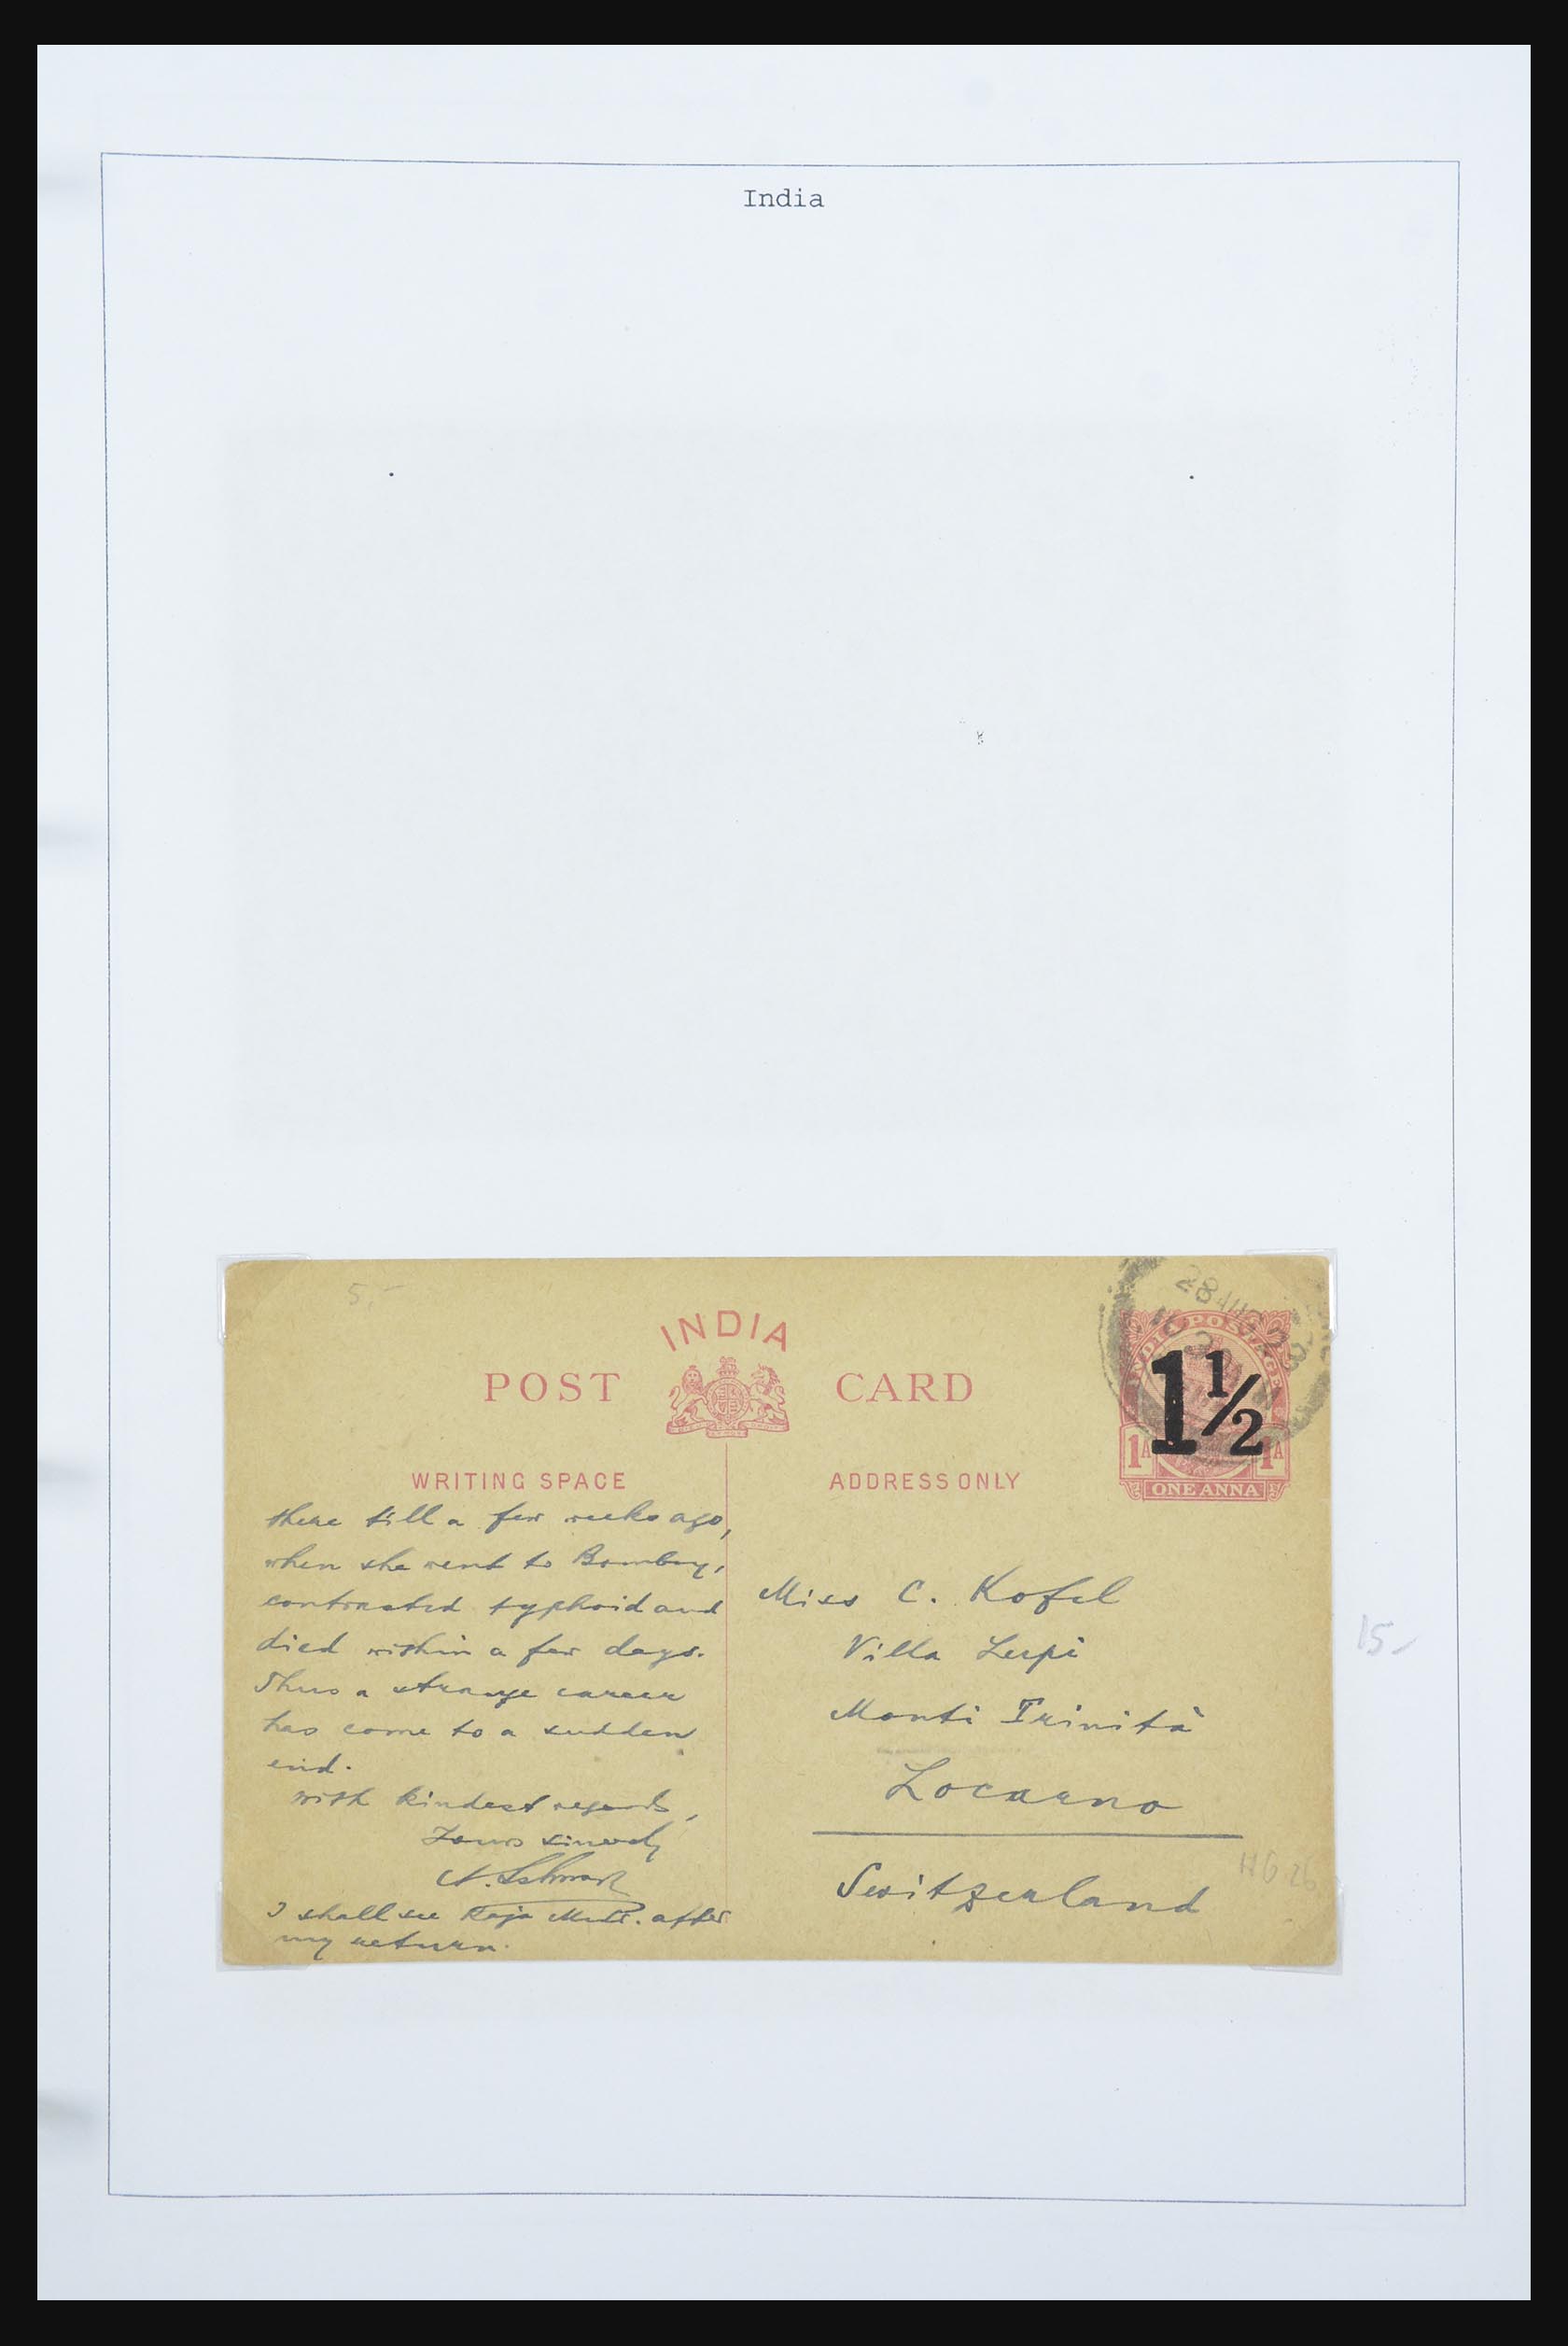 India
5,-
28 AUG 23
INDIA
POST CARD
INDIA POSTAGE
1½
1A 1A
ONE ANNA
WRITING SPACE
ADDRESS ONLY
there till a few weeks ago,
when she went to Bombay,
contracted typhoid and
died within a few days.
Thus a strange career
has come to a sudden
end.
With kindest regards,
Yours sincerely
I shall see Raja after
my return.
Miss C. Kofel
Villa Lupi
Monti Trinità
Locarno
Switzerland
HG 26
15-